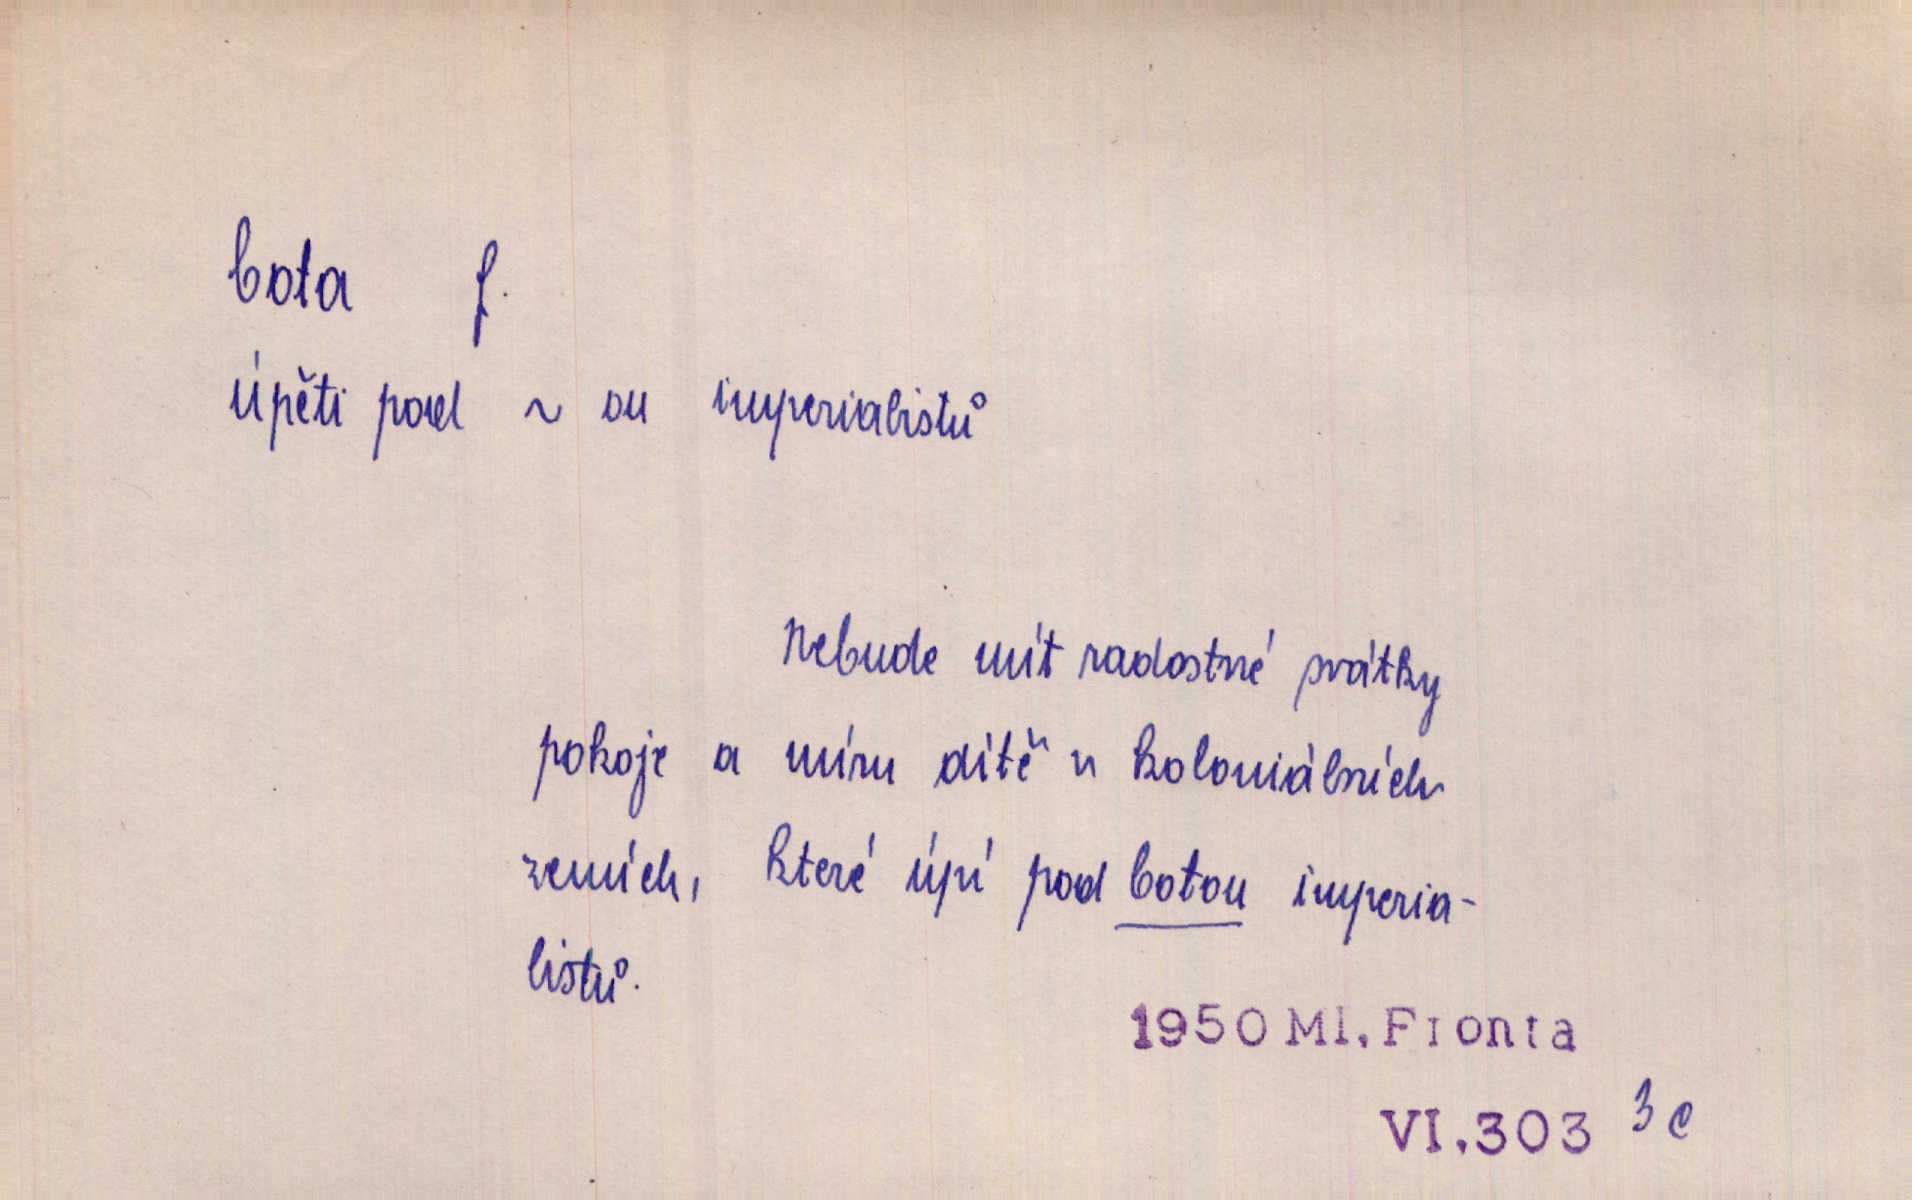 bota f.
úpěti pod ~ ou imperialistů
Nebude mít radostné svátky
pokoje a míru dítě v koloniálních
zemích, které úpí pod botou imperia-
listů.
1950 Ml. Fronta
VI.303 3 c